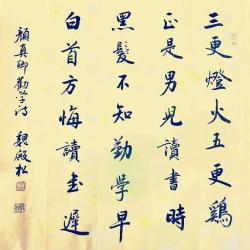 三更燈火五更鷄
正是男兒讀書時
黑髮不知勤學早
白首方悔讀書遲
顏真卿勸學詩 魏殿松